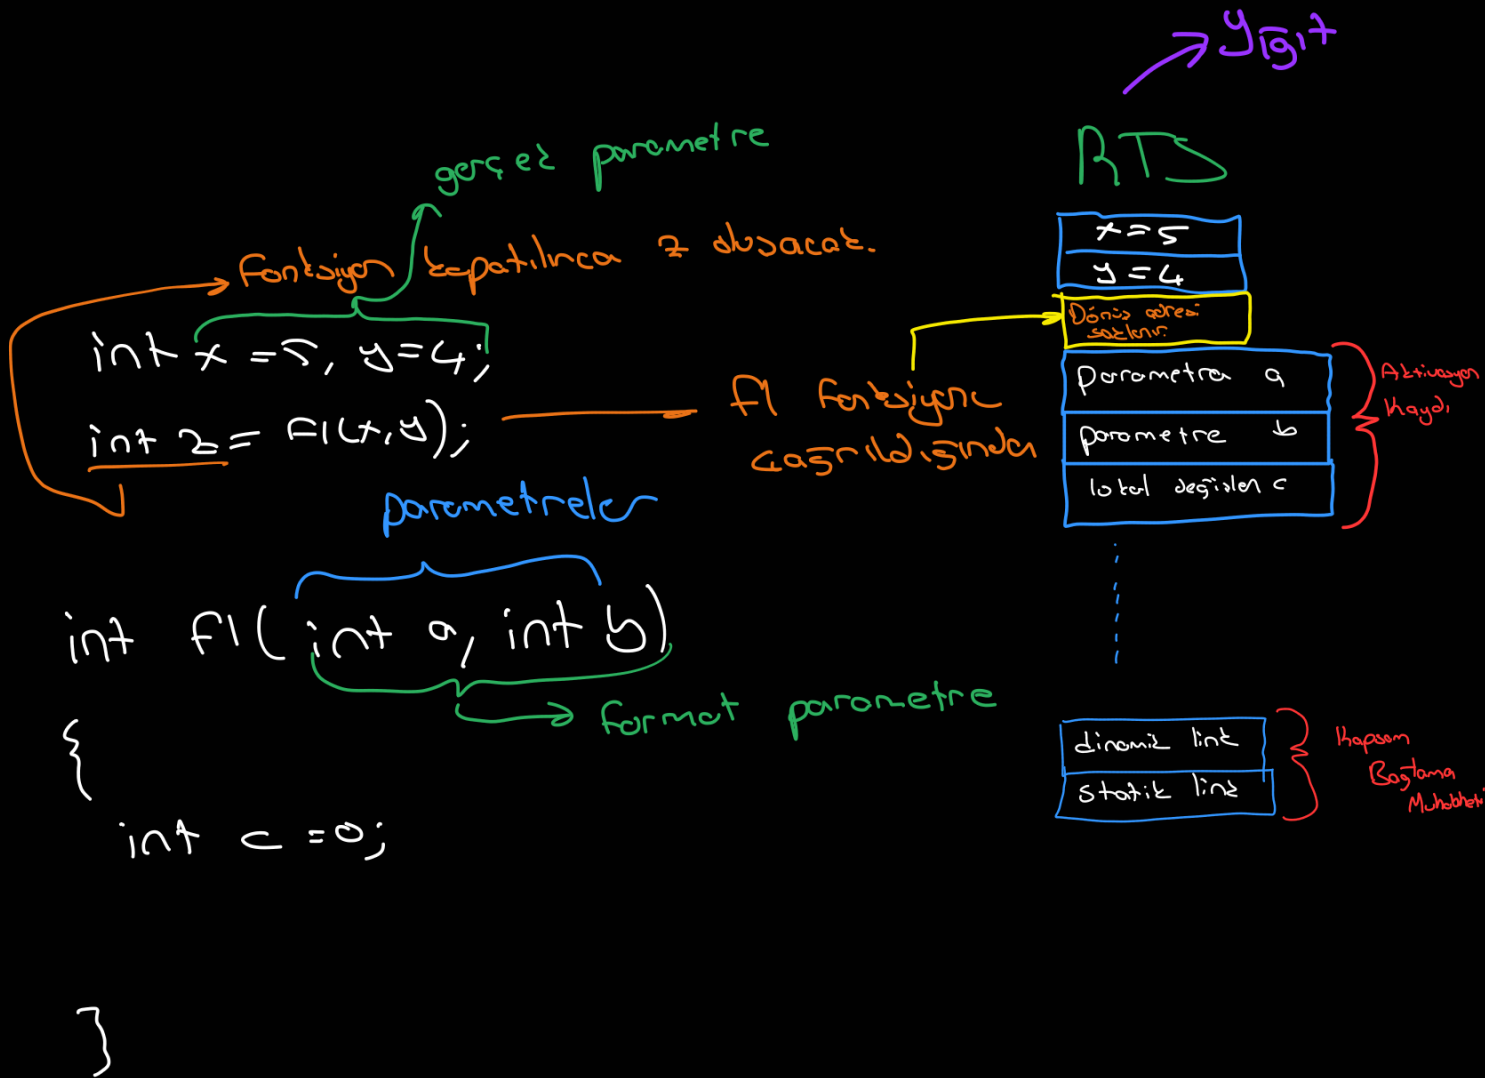 Yığıt
RTS
gerçek parametre
Fonksiyon kapatılınca z oluşacak.
int x = 5, y = 4;
int z = F1(x, y);
f1 fonksiyonu
çağrıldığında
parametreler
int f1( int a, int b)
format parametre
{
int c = 0;
}
x = 5
y = 4
Dönüş adresi
saklanır
parametre a
parametre b
lokal değişken c
Aktivasyon
Kaydı
dinamik link
statik link
Kapsam
Bağlama
Muhabbeti